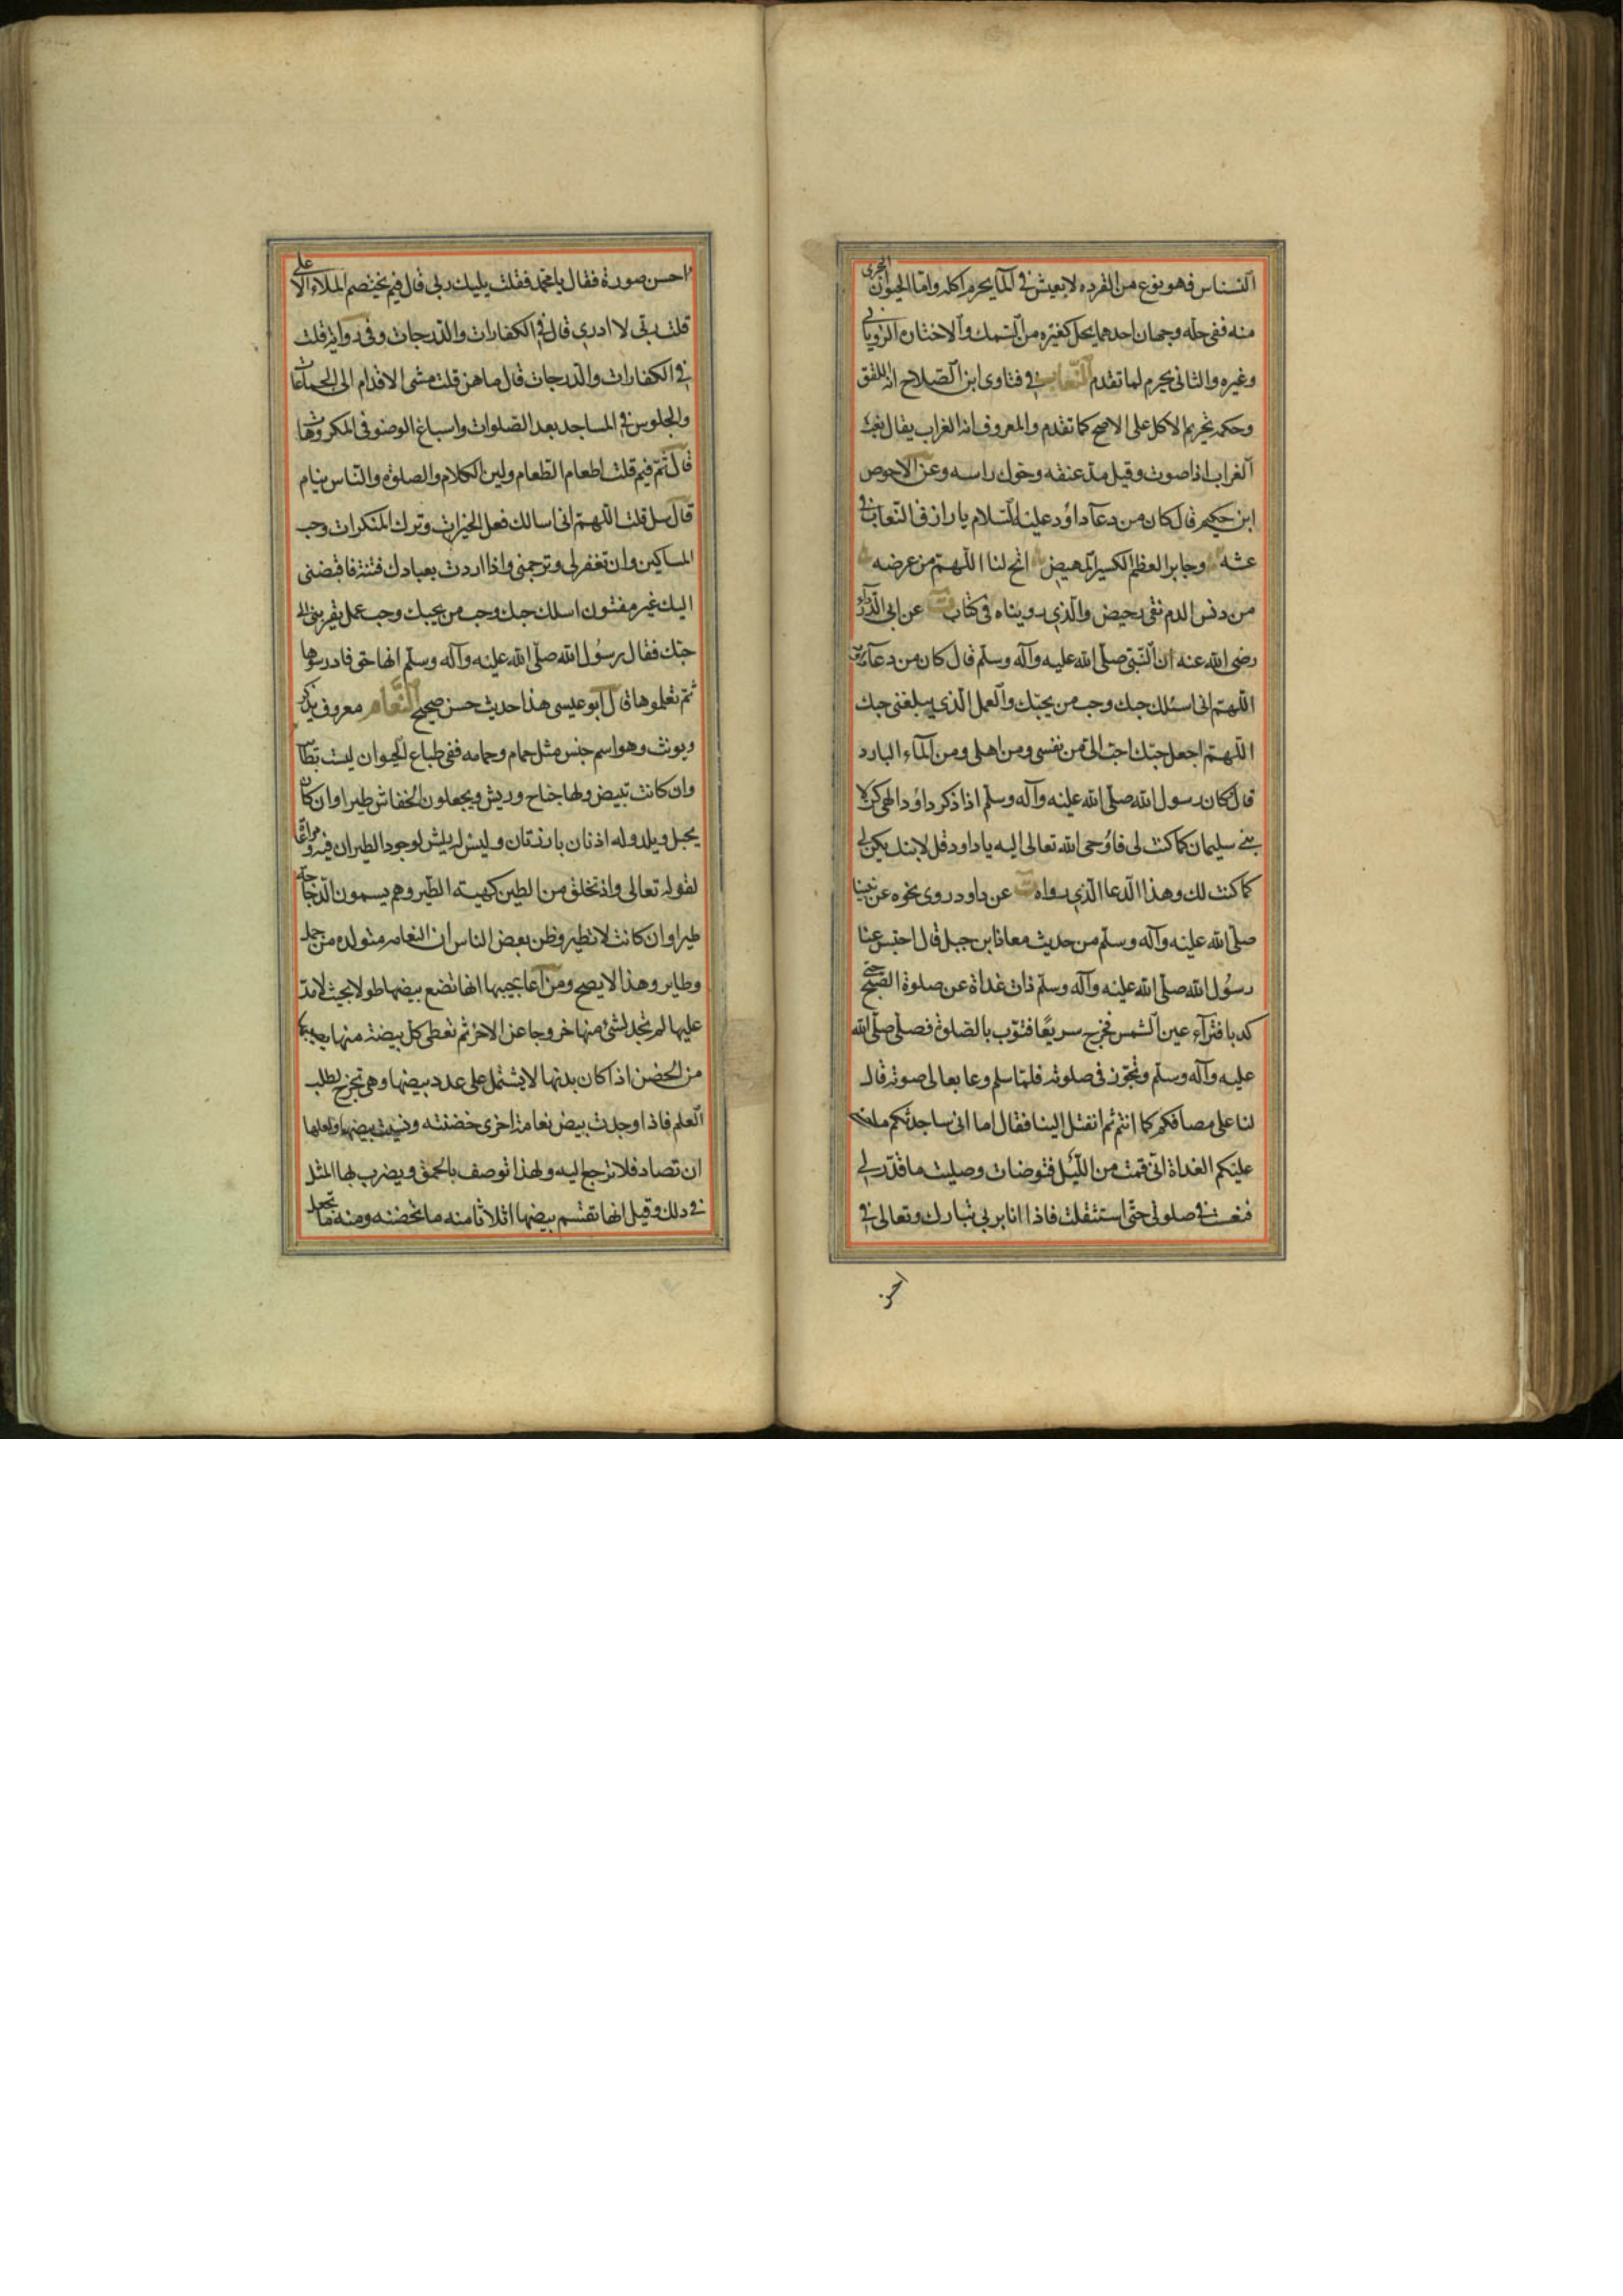 النسناس فهو نوع من القرده لا يعيش في الما يحرم اكله واما الحيوان البحرى
منه ففى حله وجهان احدهما يحل كغيره من السمك والاختاره الرويانى
وغيره والثانى يحرم لما تقدم النعاب فى فتاوى ابن الصلاح انه اللقق
وحكمه تحريم الاكل على الاصح كما تقدم والمعروف انه الغراب يقال نعب
الغراب اذا صوت وقيل مد عنقه وحول راسه وعن الاحوص
ابن حكيم قال كان من دعآ داؤد عليه السلام يا رازق النعاب فى
عشه وجابر العظم الكسير المهيض اتح لنا اللهم من عرضه
من دنس الدم نقى رحيض والذي رويناه فى كتاب ت عن ابى الدرداء
رضى الله عنه ان النبى صلى الله عليه وآله وسلم قال كان من دعآء داود
اللهم انى اسئلك حبك وحب من يحبك والعمل الذي يبلغنى حبك
اللهم اجعل حبك احب الى من نفسى ومن اهلى ومن المآء البارد
قال كان رسول الله صلى الله عليه وآله وسلم اذا ذكر داؤد الهى كن لا
بنى سليمان كما كنت لى فاوحى الله تعالى اليه يا داود قل لابنك يكن لى
كما كنت لك وهذا الدعا الذي رواه ت عن داود روى نحوه عن نبينا
صلى الله عليه وآله وسلم من حديث معاذ ابن جبل قال احتبس عنا
رسول الله صلى الله عليه وآله وسلم ذات غداة عن صلوة الصبح حتى
كدنا نترآء عين الشمس فخرج سريعا فثوب بالصلوة فصلى صلى الله
عليه وآله وسلم وتجوز فى صلوته فلما سلم وعا بعالى صوته قال
لنا على مصافكم كما انتم ثم انفتل الينا فقال اما انى ساحدثكم ما
عليكم الغداة انى قمت من الليل فتوضات وصليت ما قدر لى
فنعست فى صلوتى حتى استثقلت فاذا انا بربى تبارك وتعالى فى
احسن
احسن صورة فقال يا محمد فقلت لبيك ربى قال فيم يختصم الملاء الاعلى
قلت ربى لا ادرى قال فى الكفارات والدرجات وفى رواية قلت
فى الكفارات والدرجات قال ما هن قلت مشى الاقدام الى الجماعات
والجلوس فى المساجد بعد الصلوات واسباغ الوضو فى المكروهات
قال ثم فيم قلت اطعام الطعام ولين الكلام والصلوة والناس نيام
قال سل قلت اللهم انى اسالك فعل الخيرات وترك المنكرات وحب
المساكين وان تغفر لى وترحمنى واذا اردت بعبادك فتنة فاقبضنى
اليك غير مفتون اسلك حبك وحب من يحبك وحب عمل يقربنى الى
حبك فقال رسول الله صلى الله عليه وآله وسلم انها حق فادرسوها
ثم تعلموها قال ابو عيسى هذا حديث حسن صحيح النعام معروف يذكر
ويونث وهو اسم جنس مثل حمام وحمامه ففى طباع الحيوان ليست بطا
وان كانت تبيض ولها جناح وريش ويجعلون الخفاش طيرا وان كان
يحبل ويلد وله اذنان بارزتان وليس له ريش لوجود الطيران فيه ومراعاة
لقوله تعالى واذ تخلق من الطين كهيئة الطير وهم يسمون الدجاجة
طيرا وان كانت لا تطير وظن بعض الناس ان النعامه متولده من جمل
وطاير وهذا لا يصح ومن اعاجيبها انها تضع بيضها طولا بحيث لا مد
عليها لم تجد لشئ منها خروجا عن الاخر ثم تعطى كل بيضة منها نصيبها
من الحضن اذا كان بدنها لا يشتمل على عدد بيضها وهى تخرج لطلب
العلم فاذا وجدت بيض نعامة اخرى حضنته ونسيت بيضها ولعلها
ان تصاد فلا ترجع اليه ولهذا توصف بالحمق ويضرب لها المثل
فى ذلك وقيل انها تقسم بيضها اثلاثا منه ما تحضنه ومنه ما تجعل